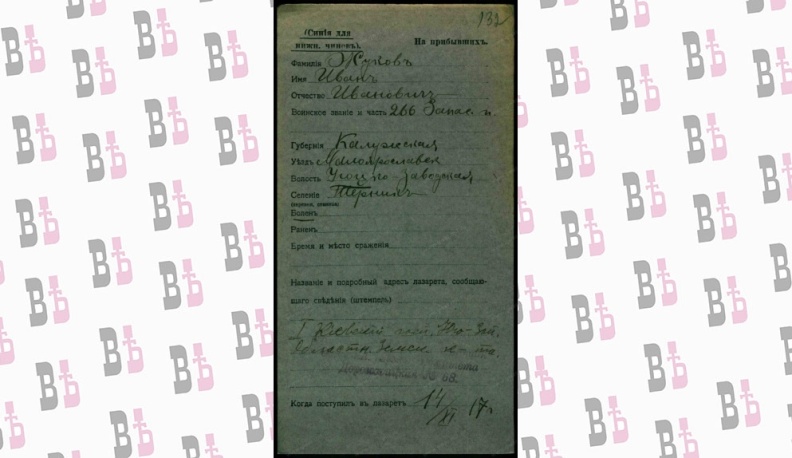 132
(Синія для
нижн. чиновъ).
На прибывшихъ.
Фамилія Жуковъ
Имя Иванъ
Отчество Ивановичъ
Воинское званіе и часть 266 Запас. п
Губернія Калужская
Уѣздъ Малоярославец
Волость Угодско-Заводская
Селеніе
Боленъ
Раненъ
Время и мѣсто сраженія
Названіе и подробный адресъ лазарета, сообщаю-
щаго свѣдѣнія (штампелъ)
I Кіевскій Юго-Зап.
Областн. Земск. к-та
68.
Когда поступилъ въ лазаретъ 14/XI 17г